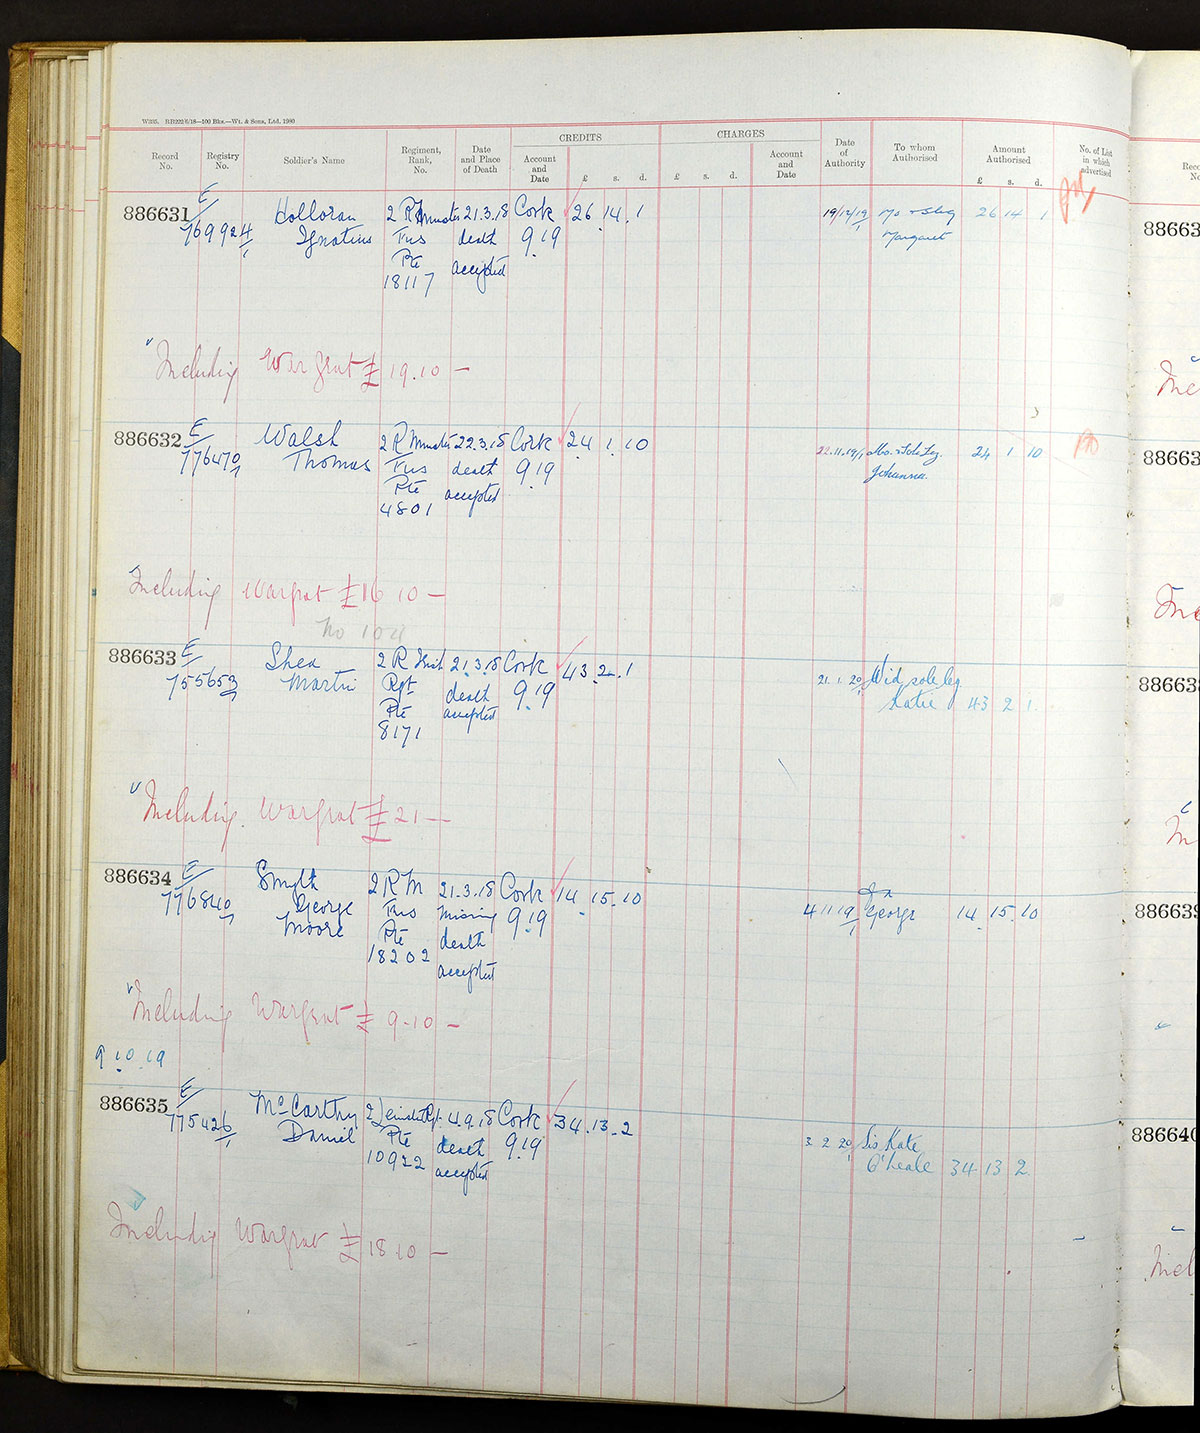 W335. RB222/6/18—100 Bks.—Wt. & Sons, Ltd. 1980
CREDITS CHARGES
Record No. Registry No. Soldier's Name Regiment, Rank, No. Date and Place of Death Account and Date £ s. d. £ s. d. Account and Date Date of Authority To whom Authorised Amount Authorised £ s. d. No. of List in which advertised
886631 E/ Holloran 2 R Munster 21.3.18 Cork 26 . 14 . 1 19/12/19/1 Mo & Sleg 26 14 1
769924/1 Ignatius Fus death 9.19 Margaret
Pte accepted
18117
Including War Grat £ 19.10 —
886632 E/ Walsh 2 R Munster 22.3.18 Cork 24 . 1 . 10 22.11.19/1 Mo. & Sole Leg. 24 1 10
776470/1 Thomas Fus death 9.19 Johanna.
Pte accepted
4801
Including Wargrat £16 10 —
886633 E/ Shea 2 R Irish 21.3.18 Cork 43 . 2 . 1 21. 1. 20/1 Wid sole leg.
755653/1 Martin Rgt death 9.19 Katie 43 2 1.
Pte accepted
8171
Including Wargrat £21 —
886634 E/ Smyth 2 R M 21.3.18 Cork 14 . 15 . 10
776840/1 George Fus Missing 9.19 4 11 19/1 George 14 . 15 . 10
Moore Pte death
18202 accepted
Including Wargrat £ 9.10 —
9 . 10 . 19
886635 E/ McCarthy 2 Leinster Rgt. 4.9.18 Cork 34 . 13 . 2 3 2 20/1 Sis Kate
775426/1 Daniel Pte death 9.19 O'Leale 34 13 2.
10922 accepted
Including Wargrat £ 18 10 —
88663
88663
88663
88663
886640